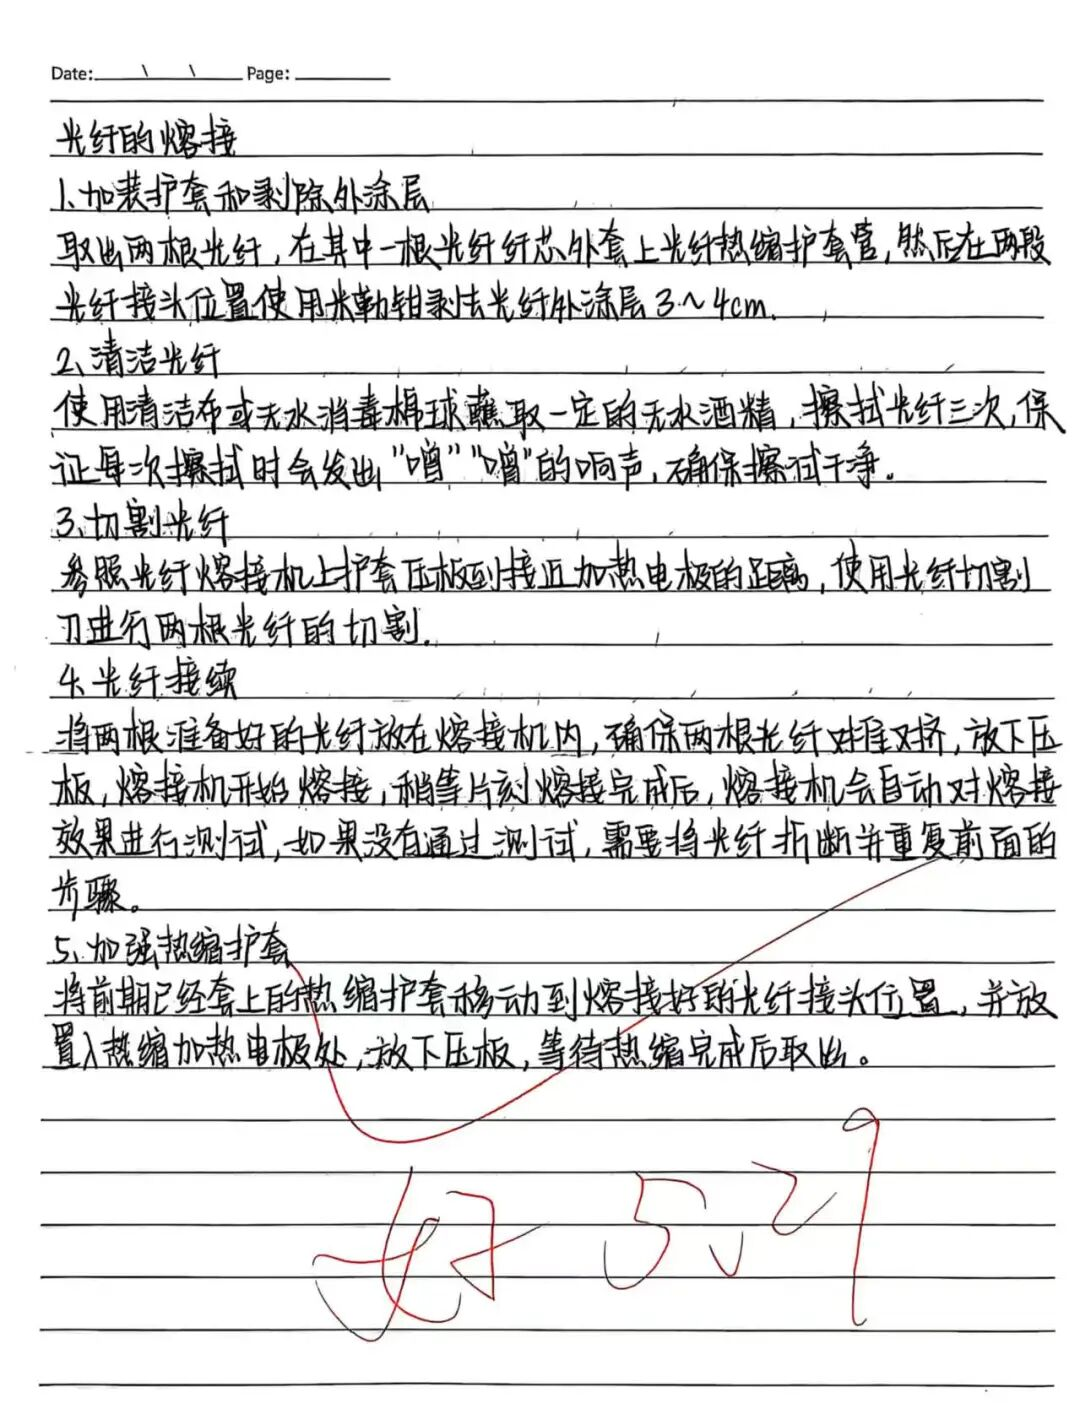 Date: \ \ Page:
光纤的熔接
1.加装护套和剥除外涂层
取出两根光纤，在其中一根光纤纤芯外套上光纤热缩护套管，然后在两段
光纤接头位置使用米勒钳剥去光纤外涂层3~4cm.
2.清洁光纤
使用清洁布或无水消毒棉球蘸取一定的无水酒精，擦拭光纤三次，保
证每次擦拭时会发出"噌""噌"的响声，确保擦试干净。
3.切割光纤
参照光纤熔接机上护套压板到接近加热电极的距离，使用光纤切割
刀进行两根光纤的切割.
4.光纤接续
将两根准备好的光纤放在熔接机内，确保两根光纤对准对挤，放下压
板，熔接机开始熔接，稍等片刻熔接完成后，熔接机会自动对熔接
效果进行测试，如果没有通过测试，需要将光纤折断并重复前面的
步骤。
5.加强热缩护套
将前期已经套上的热缩护套移动到熔接好的光纤接头位置，并放
置入热缩加热电极处，放下压板，等待热缩完成后取出。
好 5.29